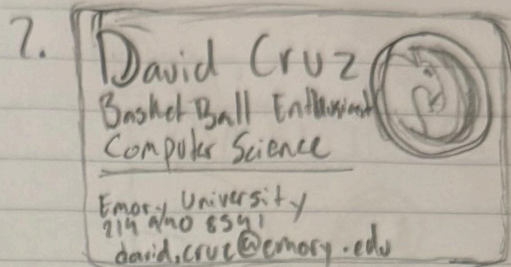 7.
David Cruz
BasketBall Enthusiast
Computer Science
Emory University
214 8541
david.cruz@emory.edu